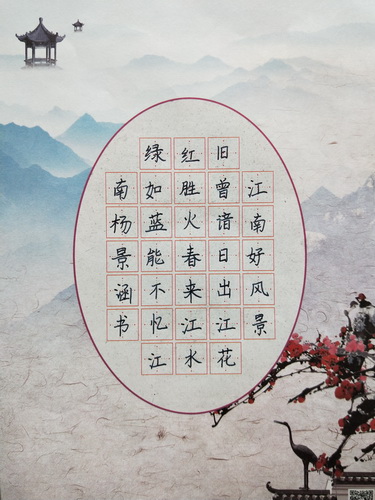 江南好风景
旧曾谙日出江花
红胜火春来江水
绿如蓝能不忆江
南杨景涵书